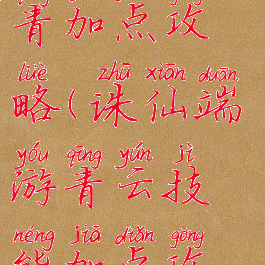 青加点攻
lüè zhū xiān duān
略(诛仙端
yóu qīng yún jì
游青云技
néng jiā diǎn gōng
能加点攻